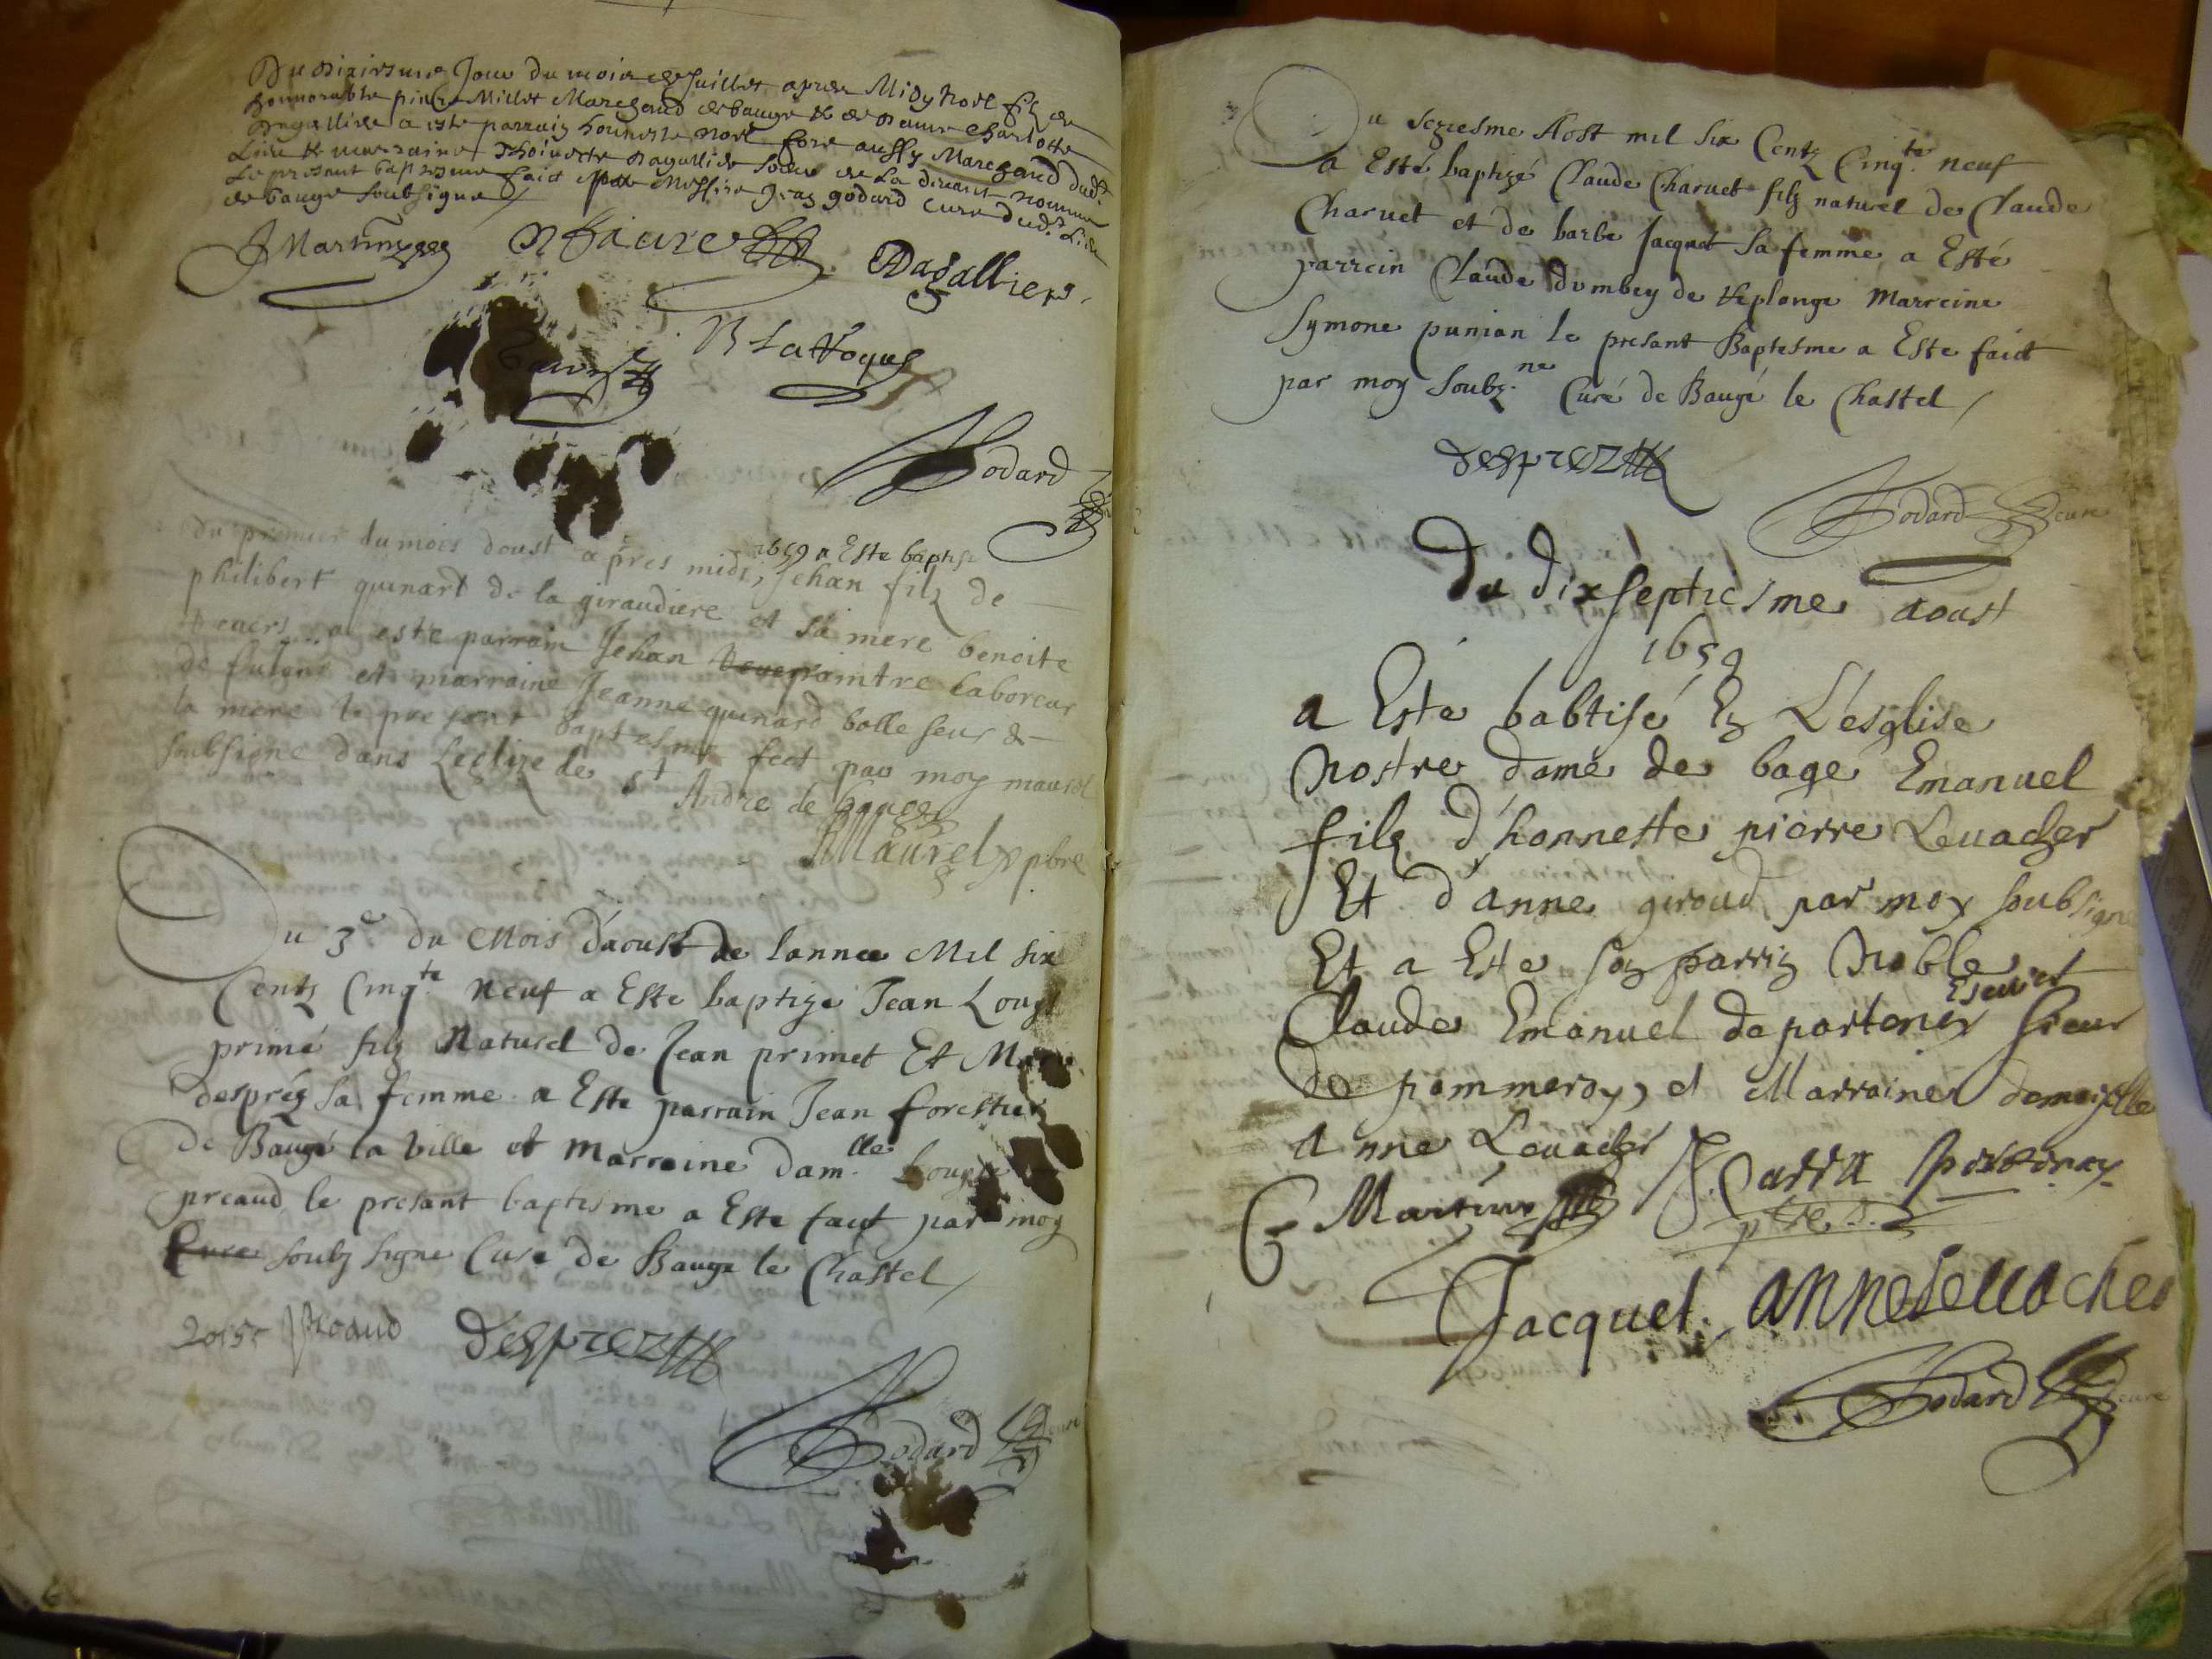 Du dixiesme Jour du mois de Juillet apres Midy Noel filz de
honnorable pierre Millet Marchand de bauge & de dame Charlotte
Dagallier a este parrain honneste Noel fore aussy Marchand dudt
Lieu & marraine Dagallier soeur de La devant nommee
Le present baptesme faict par Messire Jean godard cure dudt Lieu
de bauge soubsigne
J Martin Nfaure CDagallier
B LaVoque
Godard
du premier du mois doust apres midi, 1659 a Este baptise Jehan filz de
philibert quinart de la giraudiere et sa mere benoite
a este parrain Jehan pointre laboreur
de et marraine Jeanne quinard belle seur de
la mere le present baptesme fect par moy maurel
soubsigne dans Leglize de st Andre de bauge
Maurel pbre
Du 3e du Mois d'aoust de lannee Mil six
Centz Cinqte Neuf a Este baptize Jean Louys
primé filz Naturel de Jean primet Et
després sa femme a Este parrain Jean forestier
de Baugé la ville et Marraine damlle Louyse
preaud le presant baptesme a Este faict par moy
Cure soubz signe Cure de Bauge le Chastel
Loise preaud desprez
Godard cure
Du seziesme Aost mil six Centz Cinqte neuf
a Esté baptizé Claude Charuet filz naturel de Claude
Charuet et de barbe Jacquet sa femme a Esté
parrein Claude dombey de Veplonge Marreine
Symone punian le presant Baptesme a Este faict
par moy Soubz.ne Curé de Baugé le Chastel
desprez
Godard cure
Du dixseptiesme aoust
1659
a Este babtisé En L'esglise
Nostre dame de bage Emanuel
filz d'honneste pierre Leuacher
Et d'anne giroud par moy soubsigne
Et a Este son parrin Noble
Claude Emanuel de portenex Escuier sieur
de pommeroy, et Marraine damoyselle
Anne Leuacher
Martin J. Carra portenay
ptre. S.
Jacquet. anne leuacher
Godard cure